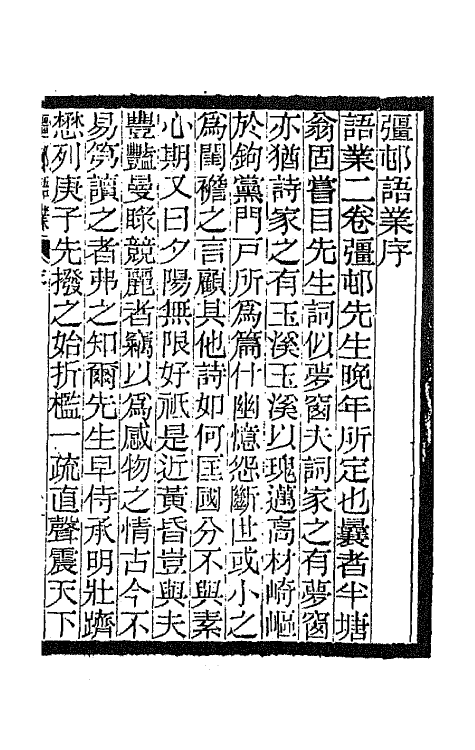 彊邨語業序
語業二卷彊邨先生晚年所定也曩者半塘
翁固嘗目先生詞似夢窗夫詞家之有夢窗
亦猶詩家之有玉溪玉溪以瑰邁高材崎嶇
於鉤黨門戸所爲篇什幽憶怨斷世或小之
爲閨襜之言顧其他詩如何匡國分不與素
心期又曰夕陽無限好祇是近黃昏豈與夫
豐豔曼睩競麗者竊以爲感物之情古今不
易第讀之者弗之知爾先生早侍承明壯躋
懋列庚子先撥之始折檻一疏直聲震天下
彊邨語業 序